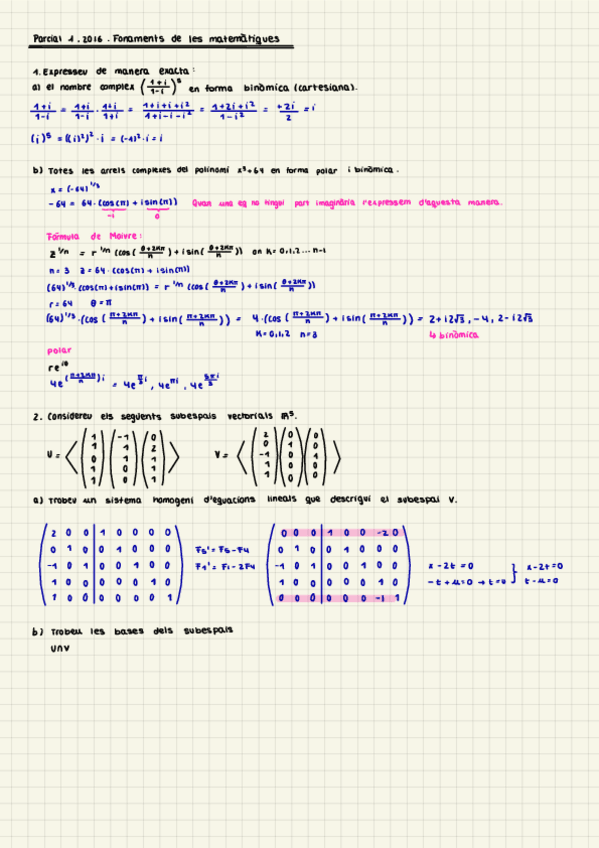 Parcial 1. 2016. Fonaments de les matemàtiques
1. Expresseu de manera exacta:
a) el nombre complex ((1+i)/(1-i))^5 en forma binòmica (cartesiana).
(1+i)/(1-i) = (1+i)/(1-i) · (1+i)/(1+i) = (1+i+i+i²)/(1+i-i-i²) = (1+2i+i²)/(1-i²) = +2i/2 = i
(i)^5 = ((i)²)² · i = (-1)² · i = i
b) Totes les arrels complexes del polinomi x³+64 en forma polar i binòmica.
x = (-64)^1/3
-64 = 64 · (cos(π) + i sin(π)) Quan una eq no tingui part imaginària l'expressem d'aquesta manera.
-1 0
Fórmula de Moivre:
z^1/n = r^1/n (cos((θ+2Kπ)/n) + i sin((θ+2Kπ)/n)) on K=0,1,2... n-1
n=3 z=64·(cos(π) + i sin(π))
(64)^1/3 · (cos(π) + i sin(π)) = r^1/n (cos((θ+2Kπ)/n) + i sin((θ+2Kπ)/n))
r=64 θ=π
(64)^1/3 · (cos((π+2Kπ)/n) + i sin((π+2Kπ)/n)) = 4·(cos((π+2Kπ)/n) + i sin((π+2Kπ)/n)) = 2+i2√3, -4, 2-i2√3
K=0,1,2 n=3 ↳ binòmica
polar
re^iθ
4e^((π+2Kπ)/n)i = 4e^(π/3)i, 4e^πi, 4e^(5π/3)i
2. Considereu els següents subespais vectorials R⁵.
U = < (1 1 0 1 1) (-1 1 1 0 0) (0 2 1 1 1) > V = < (2 0 -1 1 1) (0 1 0 0 0) (0 0 1 0 0) >
a) Trobeu un sistema homogeni d'equacions lineals que descrigui el subespai V.
2 0 0 | 1 0 0 0 0 0 0 0 | 1 0 0 -2 0
0 1 0 | 0 1 0 0 0 F5' = F5 - F4 0 1 0 | 0 1 0 0 0
-1 0 1 | 0 0 1 0 0 F1' = F1 - 2F4 -1 0 1 | 0 0 1 0 0 x-2t=0 } x-2t=0
1 0 0 | 0 0 0 1 0 1 0 0 | 0 0 0 1 0 -t+u=0 → t=u t-u=0
1 0 0 | 0 0 0 0 1 0 0 0 | 0 0 0 -1 1
b) Trobeu les bases dels subespais
U∩V